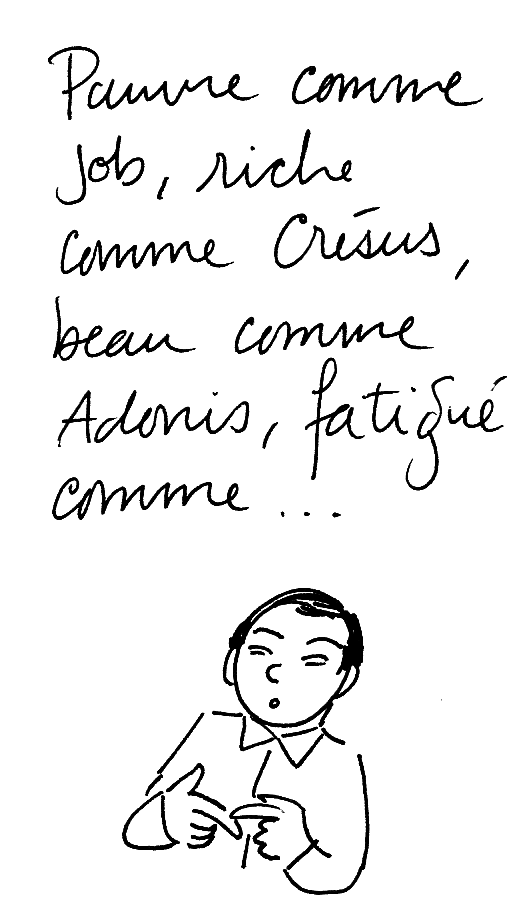 Pauvre comme
Job, riche
comme Crésus,
beau comme
Adonis, fatigué
comme ...